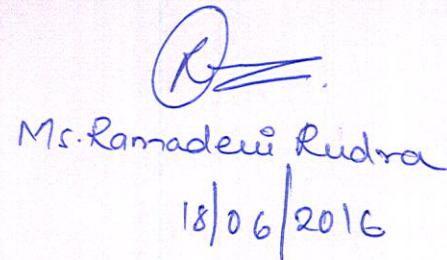 Ms. Ramadevi Rudra
18/06/2016